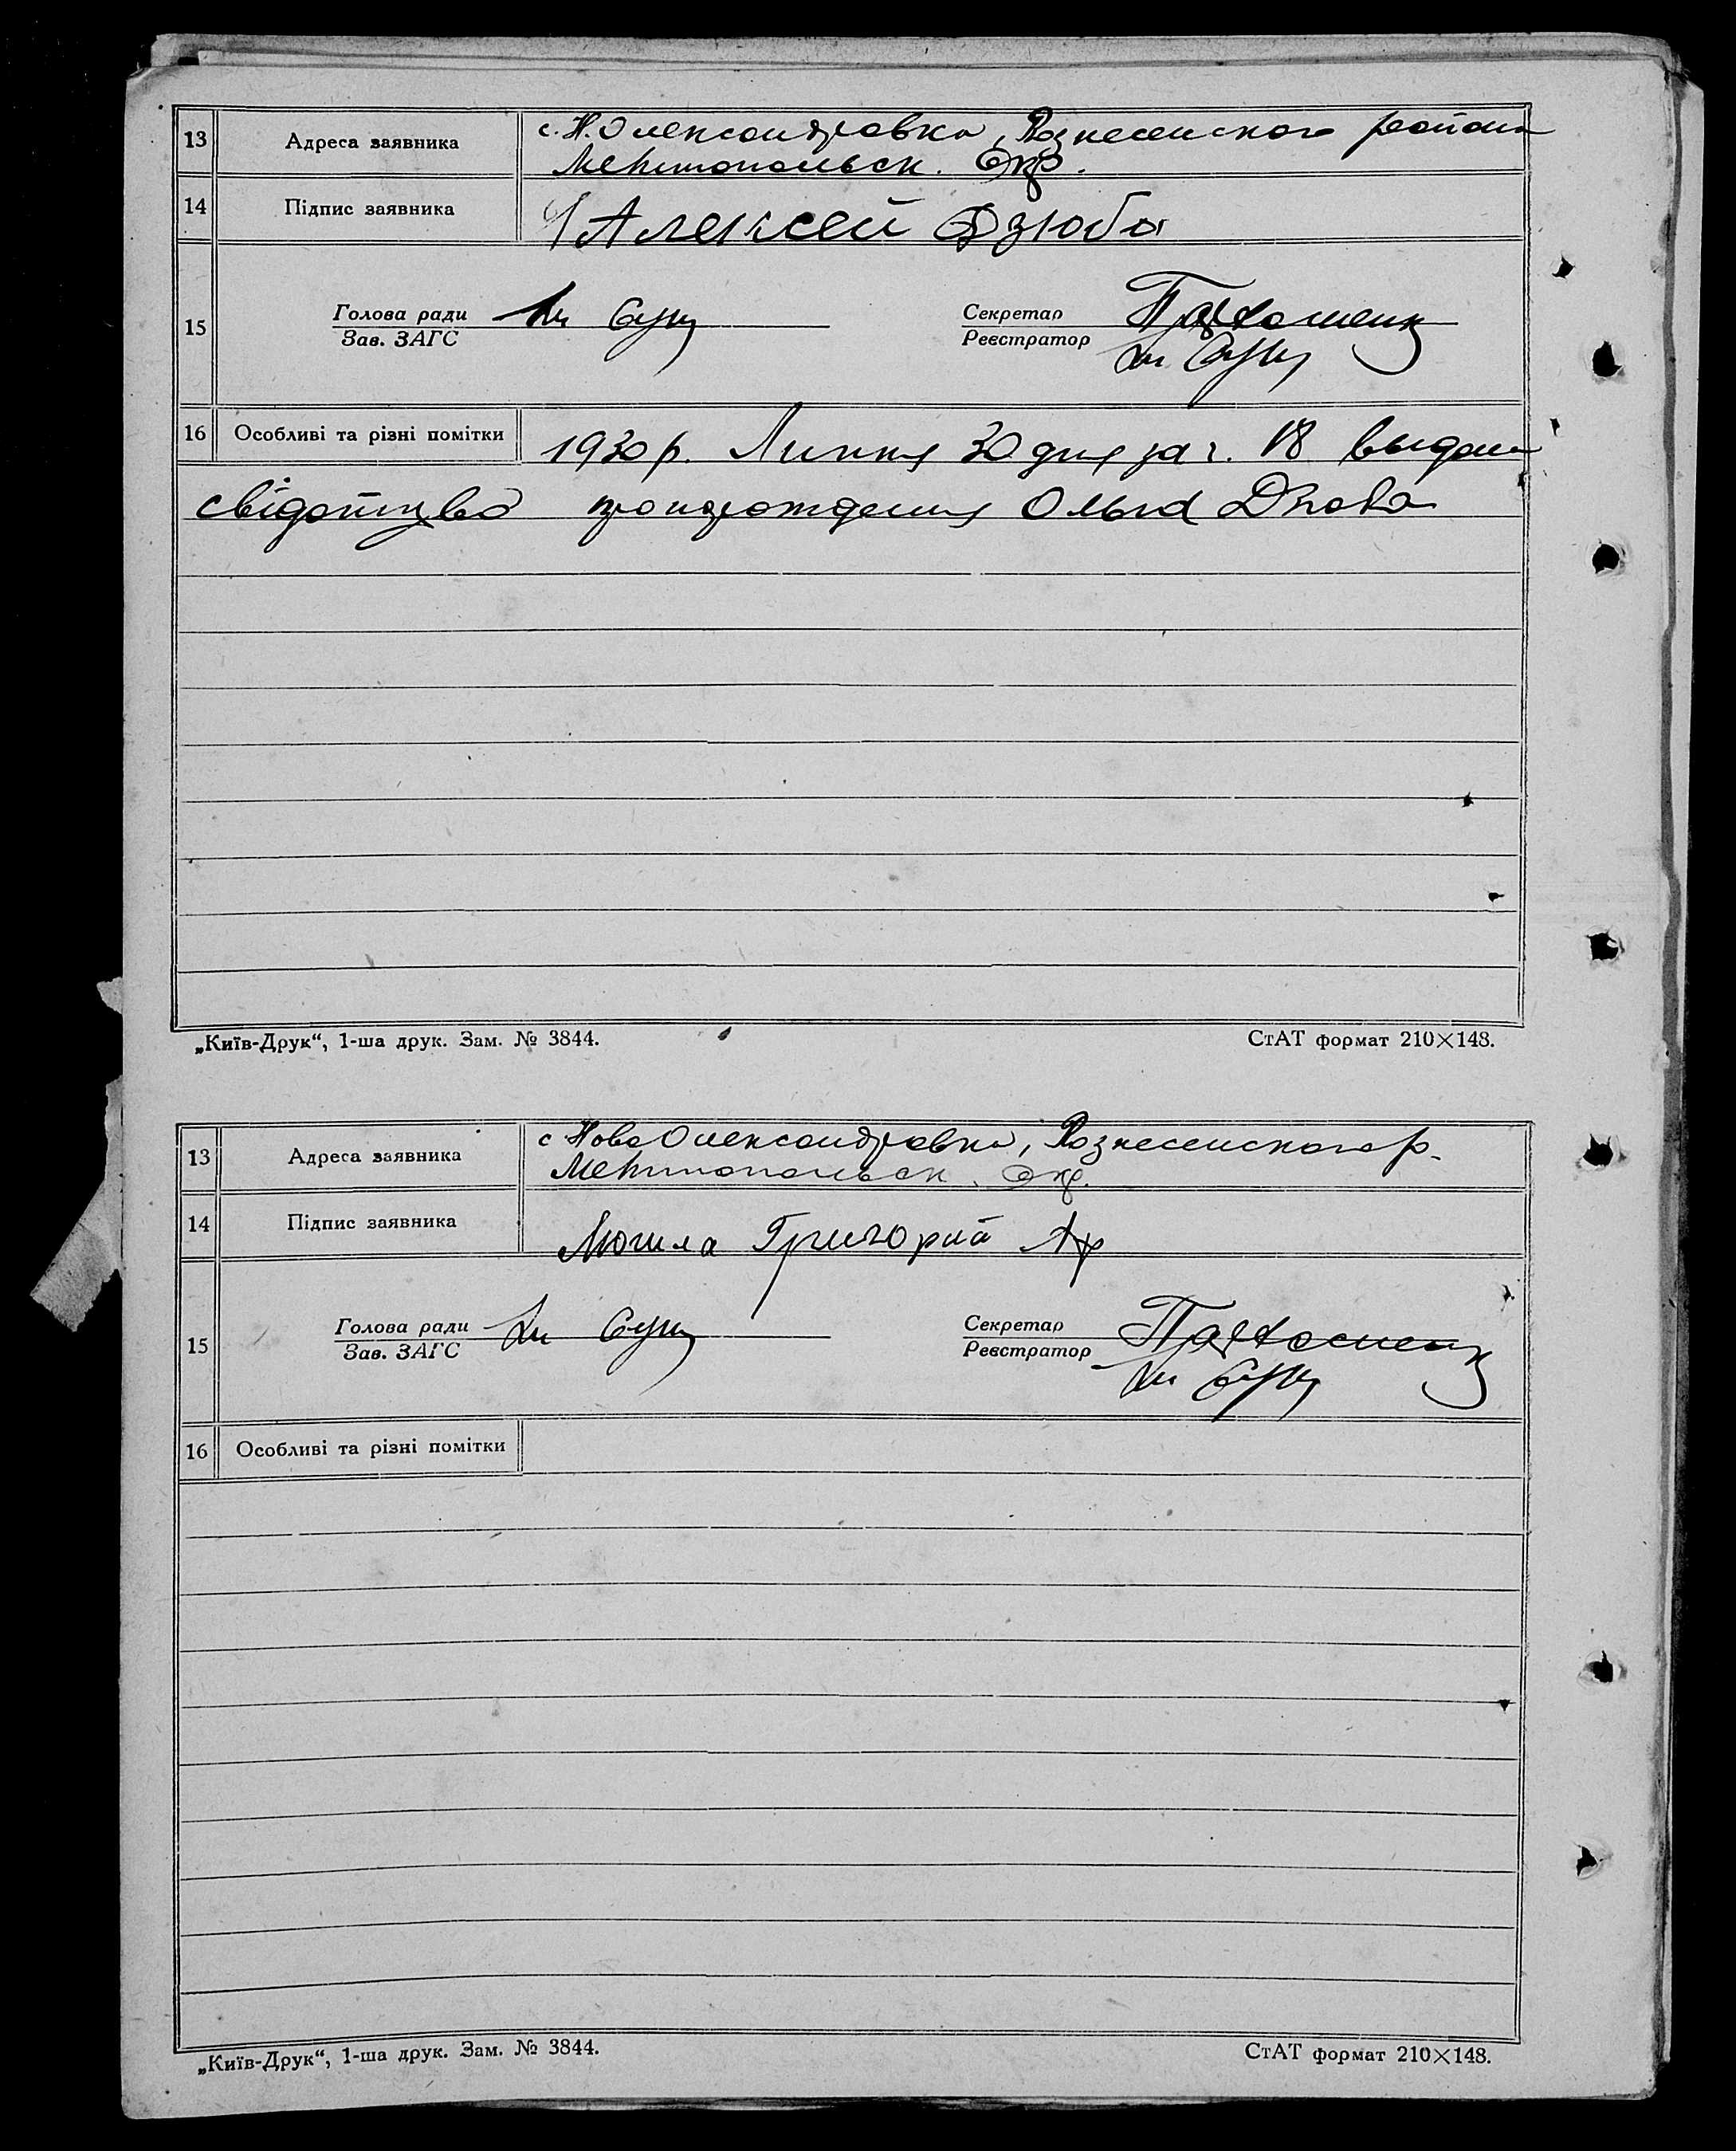 13 Адреса заявника с. Н. Олександровка, Вознесенского района
Мелитопольск. Окр.
14 Підпис заявника Алексей Дзюба
15 Голова ради Секретар
Зав. ЗАГС Реєстратор
16 Особливі та різні помітки 1930 р. Липня 30 дня за ч. 18 выдан
свідоптцво
„Київ-Друк“, 1-ша друк. Зам. № 3844. СтАТ формат 210×148.
13 Адреса заявника с НовоОлександровка, Вознесенского р.
Мелитопольск. Окр.
14 Підпис заявника Могила Григорий
15 Голова ради Секретар
Зав. ЗАГС Реєстратор
16 Особливі та різні помітки
„Київ-Друк“, 1-ша друк. Зам. № 3844. СтАТ формат 210×148.